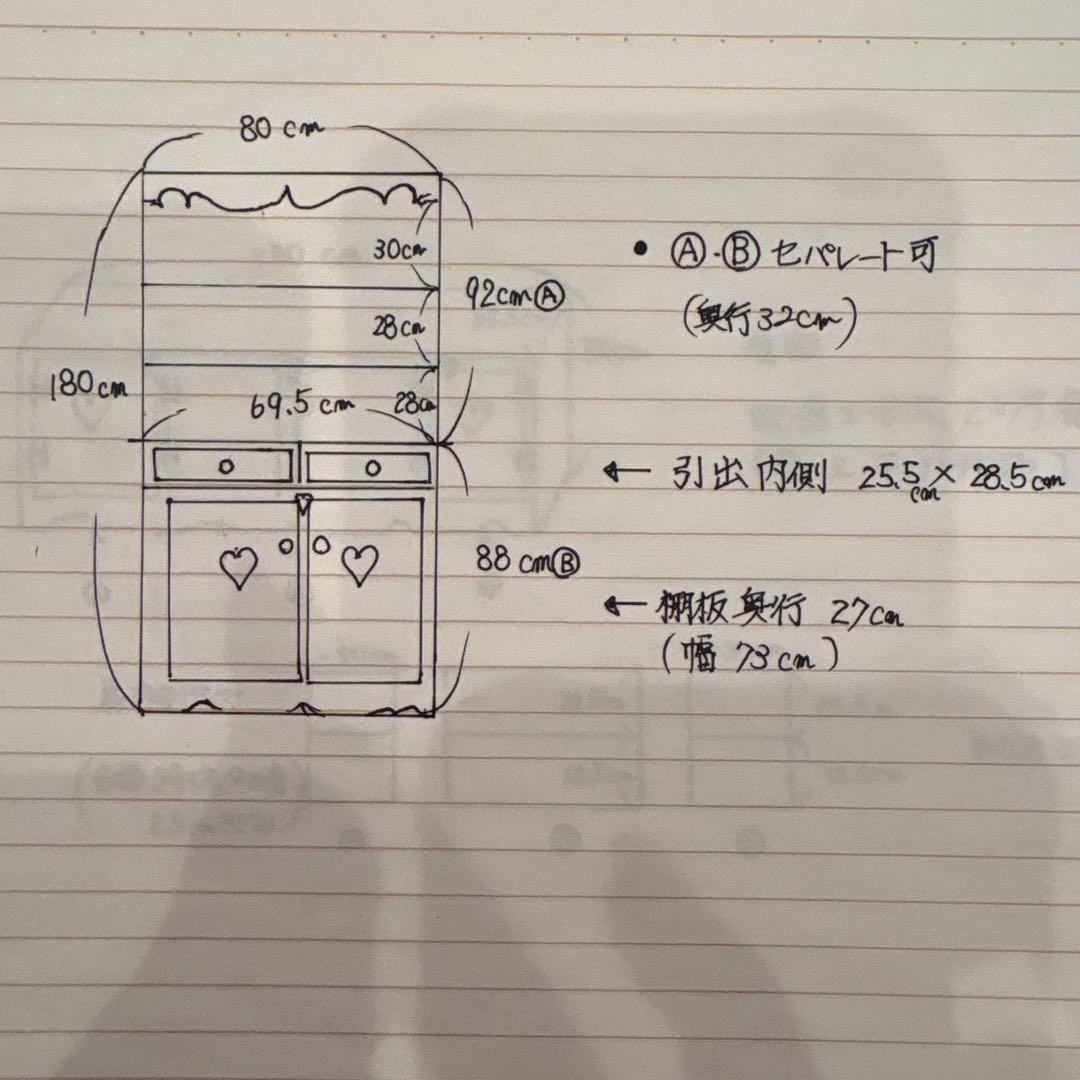 80 cm
30cm
92cmⒶ
28cm
180cm
69.5 cm
28cm
88 cmⒷ
• Ⓐ・Ⓑ セパレート可
(奥行32cm)
← 引出内側 25.5cm × 28.5cm
← 棚板奥行 27cm
(幅 73cm)